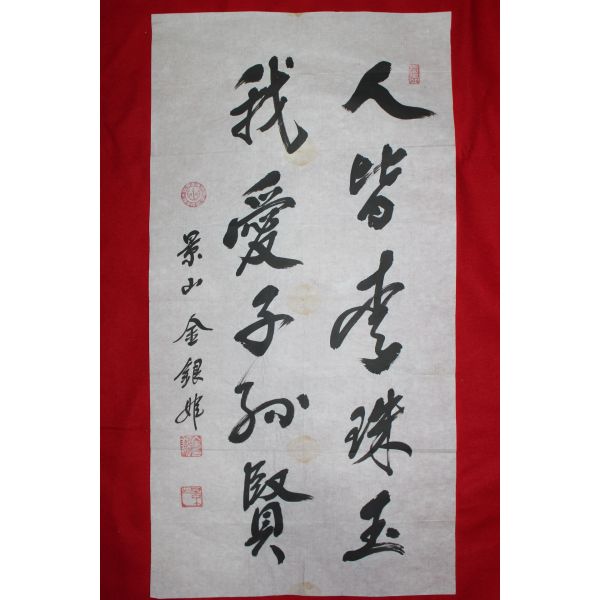 人皆愛珠玉
我愛子孫賢
景山 金銀姬